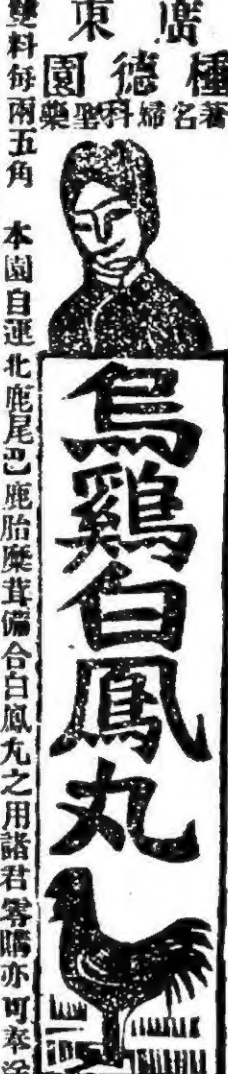 廣東
種德園
著名婦科聖藥
烏鷄白鳳丸
雙料每兩五角 本園自運北鹿尾巴鹿胎麋茸備合白鳳丸之用諸君零購亦可奉